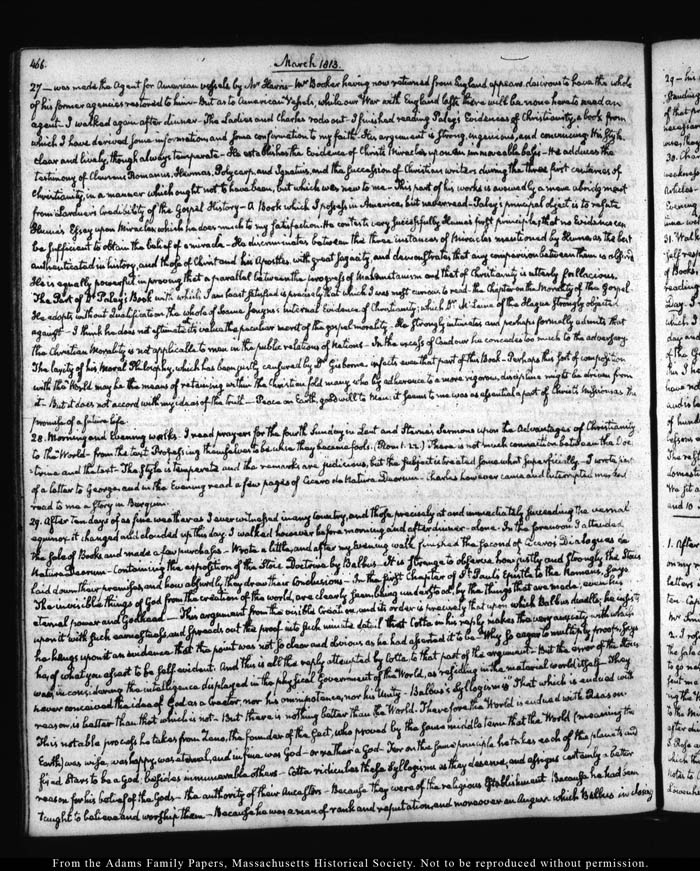 466.
March 1813.
27 — was made the Agent for American vessels by Mr Harris. Mr Booker having now returned from England appears desirous to have the whole
of his former agencies restored to him. But as to American Vessels, while our War with England lasts there will be none here to need an
agent. I walked again after dinner. The Ladies and Charles rode out. I finished reading Paley's Evidences of Christianity, a book from
which I have derived some information and some confirmation to my faith. His argument is strong, ingenious, and convincing. His Style
clear and lively, though always temperate. He establishes the Evidence of Christ's Miracles upon an immoveable basis. He adduces the
testimony of Clemens Romanus, Hermas, Polycarp, and Ignatius, and the succession of Christian writers during the three first centuries of
Christianity, in a manner which ought not to have been, but which was new to me. This part of his works is avowedly a mere abridgment
from Lardner's Credibility of the Gospel History — A Book which I possess in America, but never read. Paley's principal object is to refute
Hume's Essay upon Miracles, which he does much to my satisfaction. He contests very successfully Hume's first principle, that no Evidence can
be sufficient to obtain the belief of a miracle. He discriminates between the three instances of Miracles mentioned by Hume as the best
authenticated in history, and those of Christ and his Apostles, with great sagacity, and demonstrates that any comparison between them is absurd.
He is equally powerful in proving that a parallel between the progress of Mahometanism and that of Christianity is utterly fallacious.
The Part of Dr Paley's Book with which I am least satisfied is precisely that which I was most curious to read. the Chapter on the Morality of the Gospel.
He adopts without qualification, the whole of Soame Jenyns's internal Evidence of Christianity, which Dr McLaine of the Hague strongly objected
against. I think he does not estimate its value the peculiar merit of the gospel morality. He strongly intimates and perhaps formally admits that
the Christian Morality is not applicable to men in the public relations of Nations. In the excess of Candour he concedes too much to the adversary.
The laxity of his Moral Philosophy, which has been justly censured by Dr Gisborne infects even that part of this Book. Perhaps this sort of composition
with the World may be the means of retaining within the Christian fold many who by adherence to a more rigorous discipline might be driven from
it. But it does not accord with my ideas of the truth. Peace on Earth, good will to Men, it seems to me was as essential a part of Christ's Mission as the
promise of a future life.
28. Morning and Evening walks. I read prayers for the fourth Sunday in Lent and Sterne's Sermons upon the Advantages of Christianity
to the World. from the text Professing themselves to be wise they became fools. (Rom. 1. 22.) There is not much connection between the Doc-
trine and the text. The Style is temperate and the remarks are judicious, but the subject is treated somewhat superficially. I wrote part
of a letter to George, and in the Evening read a few pages of Cicero de Natura Deorum. Charles however came and interrupted me and
read to me a Story in Berquin.
29. After ten days of as fine weather as I ever witnessed in any Country, and those precisely at and immediately succeeding the vernal
equinox it changed and clouded up this day. I walked however before morning and after dinner. alone. In the forenoon I attended
the sale of Books and made a few purchases. Wrote a little, and after my Evening walk finished the second of Cicero's Dialogues de
Natura Deorum. Containing the exposition of the Stoic Doctrine by Balbus. It is strange to observe how justly and strongly the Stoics
laid down their premises, and how absurdly they drew their Conclusions. In the first Chapter of St. Paul's Epistle to the Romans he says
The invisible things of God from the creation of the world, are clearly seen being understood, by the things that are made; even his
eternal power and Godhead. — This argument from the visible Creation, and its order is precisely that upon which Balbus dwells; he insists
upon it with such earnestness, and spreads out the proof into such minute detail that Cotta in his reply makes the very anxiety with which
he hangs upon it an evidence that the point was not so clear and obvious as he had asserted it to be. Why so eager to multiply proofs, says
he, of what you assert to be self evident. And this is all the reply attempted by Cotta to that part of the argument. But the error of the Stoics
was, in considering the intelligence displayed in the physical Government of the World, as residing in the material world itself. They
never conceived the idea of God as a Creator, nor his omnipotence, nor his Unity. Balbus's Syllogism is "That which is endued with
reason, is better than that which is not. But there is nothing better than the World. Therefore the World is endued with Reason.
This notable process he takes from Zeno, the founder of the Sect, who proved by the same middle term that the World (meaning the
Earth) was wise, was happy, was eternal, and in fine was God — or rather a God. For on the same principle he takes each of the planets and
fixed Stars to be a God, besides innumerable others. Cotta ridicules these Syllogisms as they deserve, and assigns certainly a better
reason for his belief of the Gods — the authority of their Ancestors — Because they were of the religious Establishment. Because he had been
taught to believe and worship them — Because he was a man of rank and reputation, and moreover an Augur. which Balbus in closing
From the Adams Family Papers, Massachusetts Historical Society. Not to be reproduced without permission.